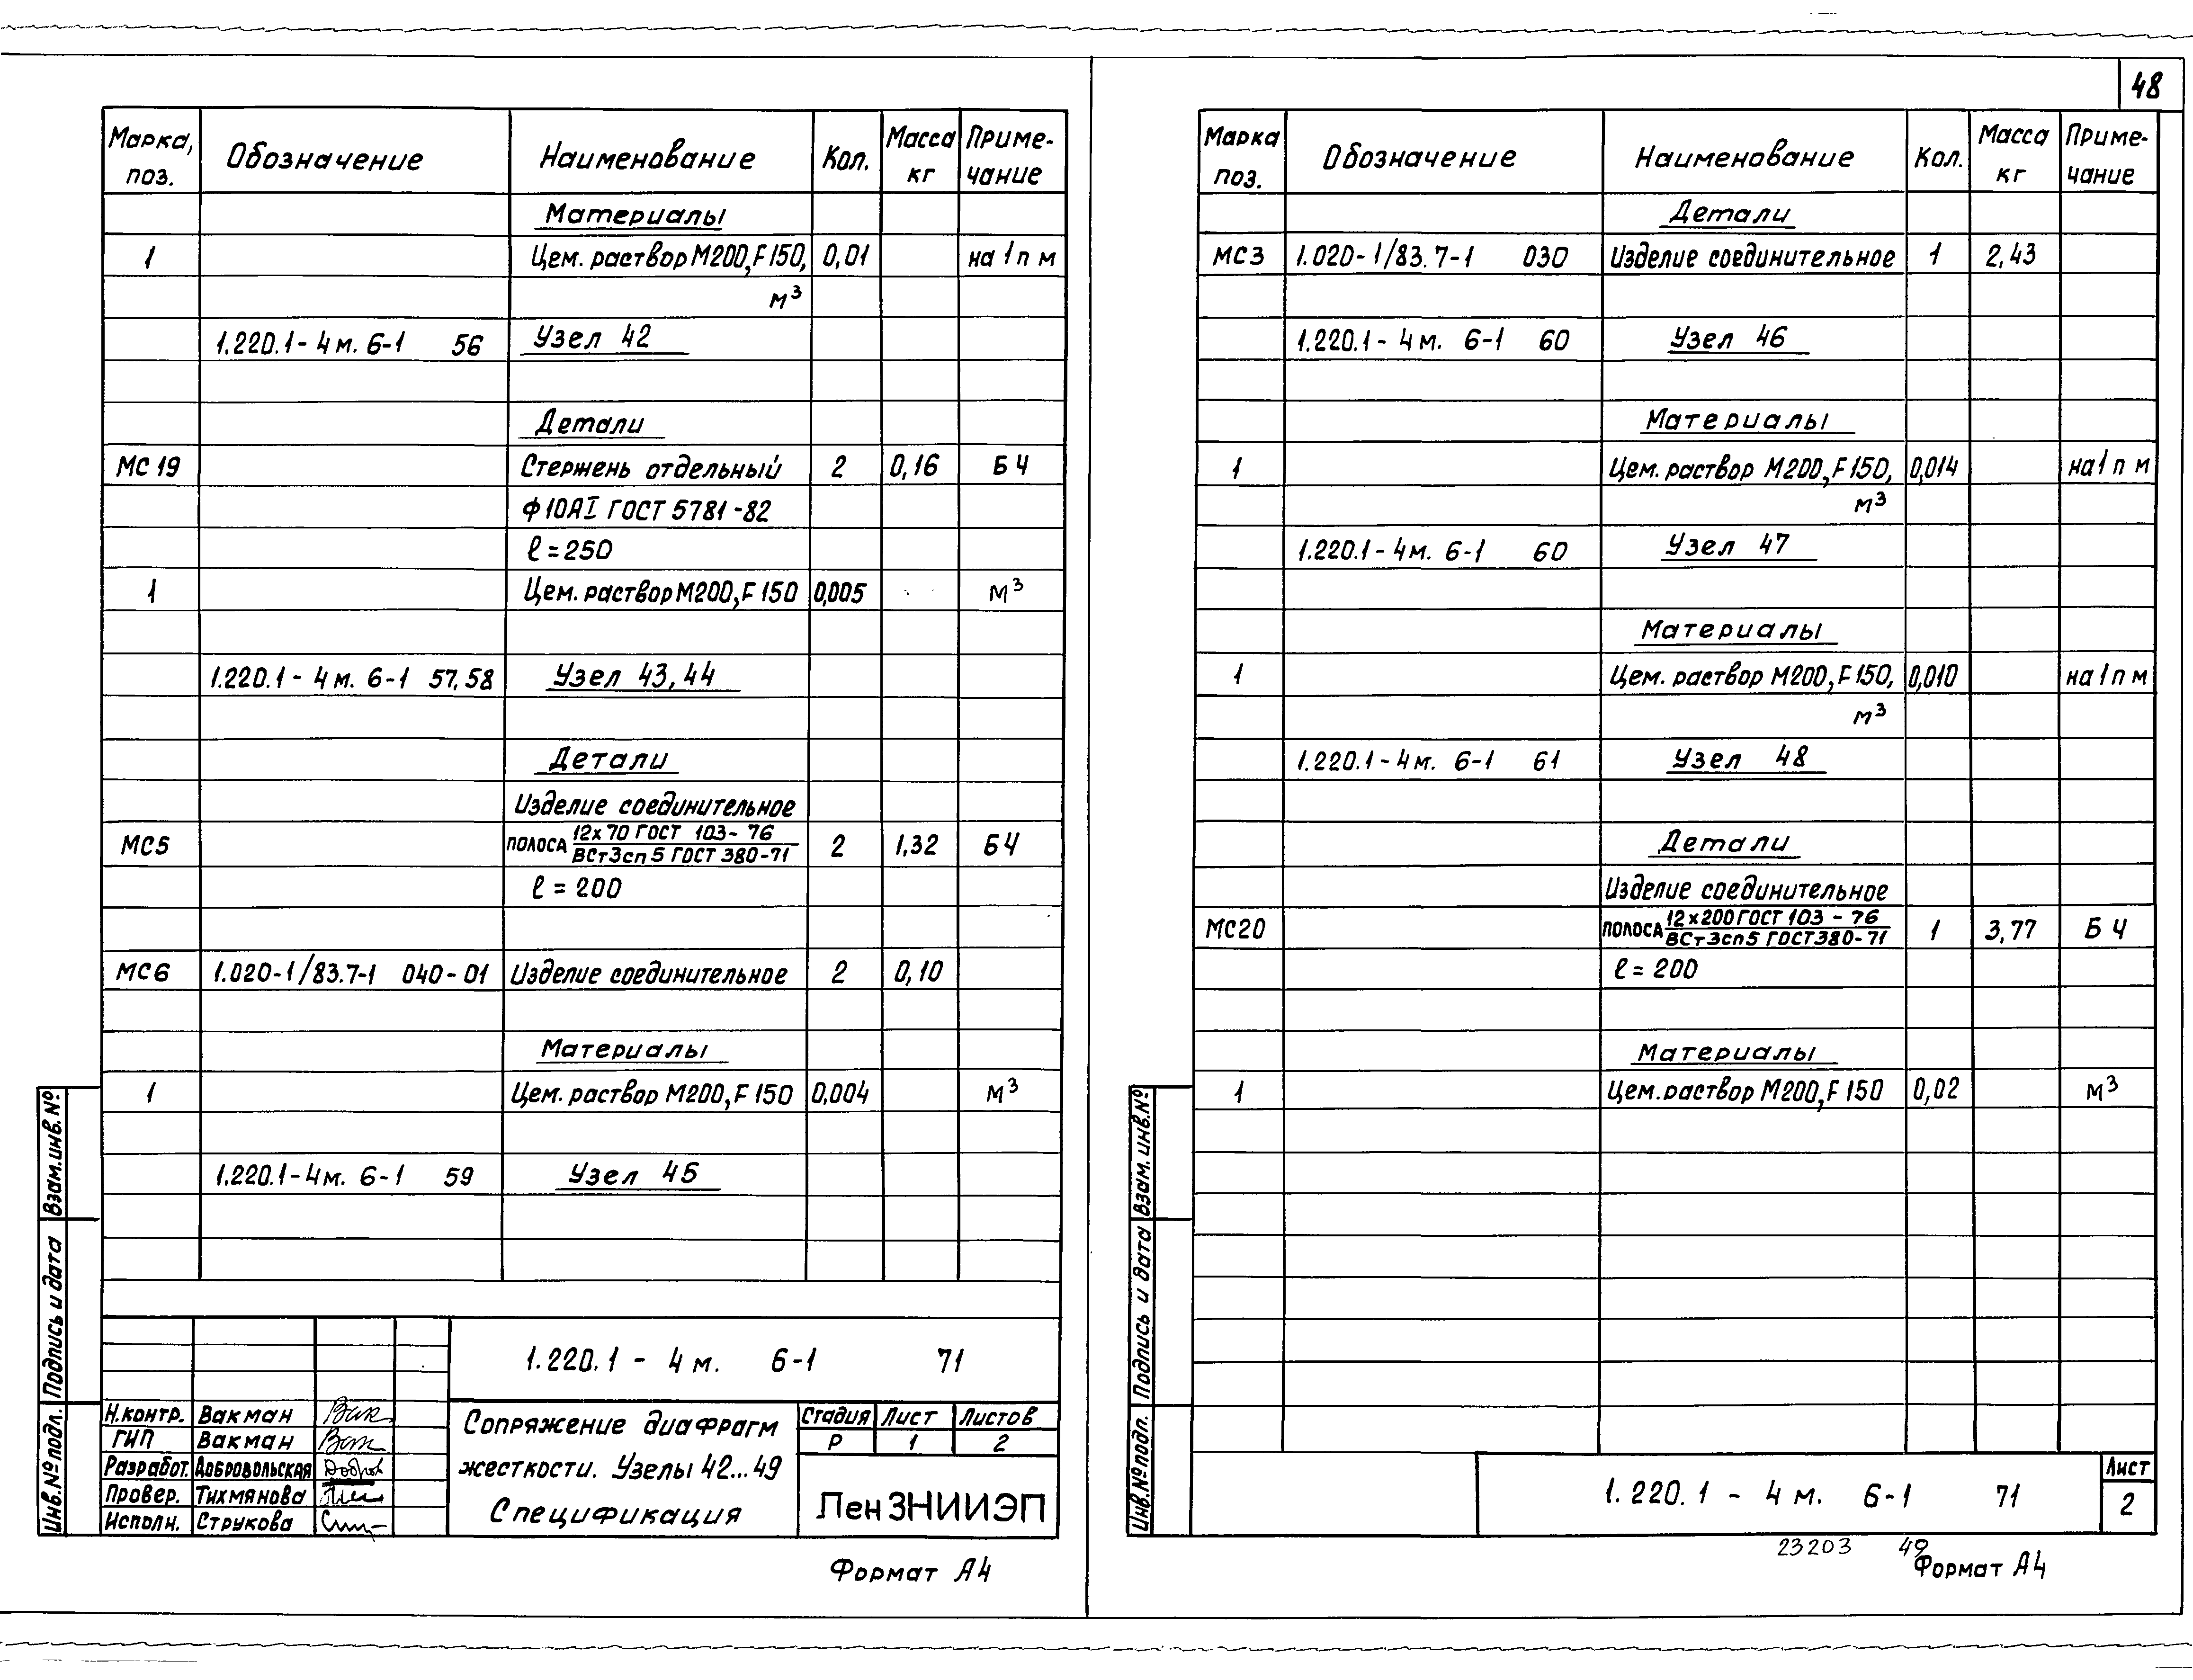 48
Марка, поз. Обозначение Наименование Кол. Масса кг Примечание
Материалы
1 Цем. раствор М200, F150, 0,01 на 1 п м
м³
1.220.1-4м. 6-1 56 Узел 42
Детали
МС 19 Стержень отдельный 2 0,16 БЧ
Ф10АI ГОСТ 5781-82
ℓ=250
1 Цем. раствор М200, F150 0,005 м³
1.220.1-4м. 6-1 57,58 Узел 43,44
Детали
Изделие соединительное
МС5 полоса 12х70 ГОСТ 103-76 / ВСт3сп5 ГОСТ 380-71 2 1,32 БЧ
ℓ=200
МС6 1.020-1/83.7-1 040-01 Изделие соединительное 2 0,10
Материалы
1 Цем. раствор М200, F150 0,004 м³
1.220.1-4м. 6-1 59 Узел 45
1.220.1-4м. 6-1 71
Н.контр. Вакман
ГИП Вакман
Разработ. Добровольская
Провер. Тихмянова
Исполн. Струкова
Сопряжение диафрагм
жесткости. Узлы 42...49
Спецификация
Стадия Лист Листов
Р 1 2
ЛенЗНИИЭП
Инв.№подл. Подпись и дата Взам.инв.№
Формат А4
Марка поз. Обозначение Наименование Кол. Масса кг Примечание
Детали
МС3 1.020-1/83.7-1 030 Изделие соединительное 1 2,43
1.220.1-4м. 6-1 60 Узел 46
Материалы
1 Цем. раствор М200, F150, 0,014 на 1 п м
м³
1.220.1-4м. 6-1 60 Узел 47
Материалы
1 Цем. раствор М200, F150, 0,010 на 1 п м
м³
1.220.1-4м. 6-1 61 Узел 48
Детали
Изделие соединительное
МС20 полоса 12х200 ГОСТ 103-76 / ВСт3сп5 ГОСТ 380-71 1 3,77 БЧ
ℓ=200
Материалы
1 Цем. раствор М200, F150 0,02 м³
Инв.№подл. Подпись и дата Взам.инв.№
1.220.1-4м. 6-1 71
Лист
2
23203 49
Формат А4